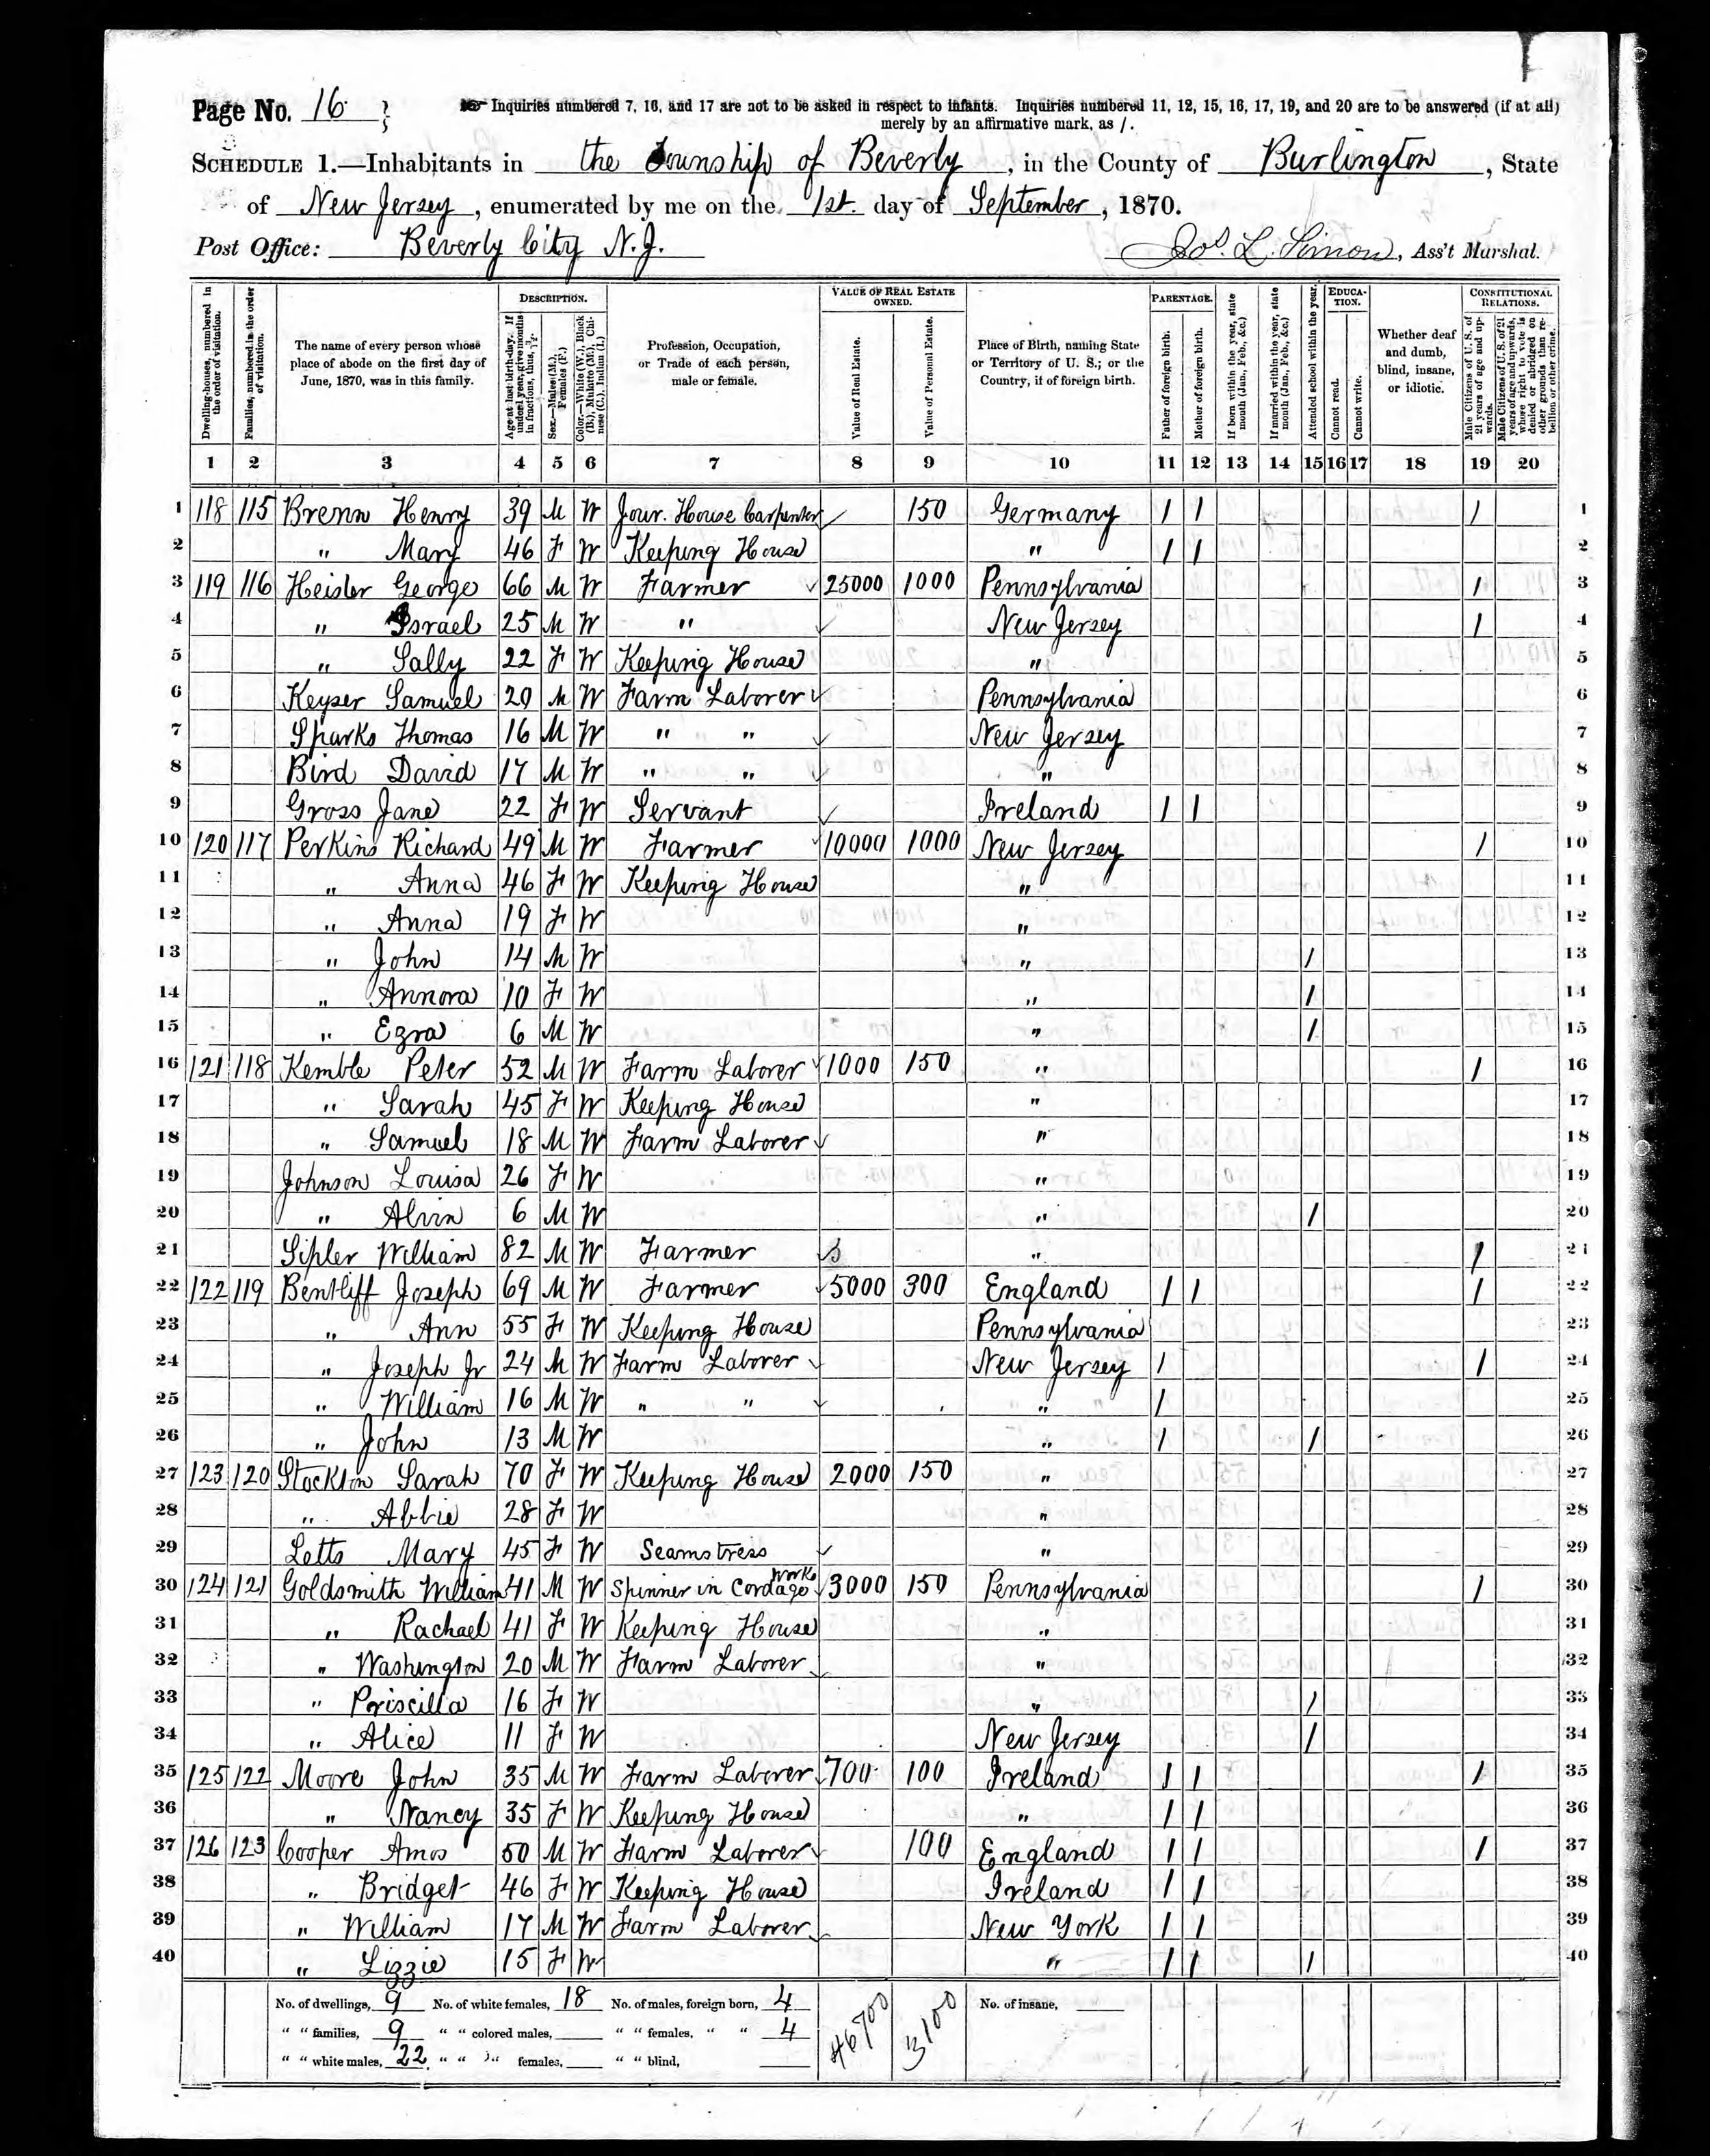 Page No. 16 } Inquiries numbered 7, 16, and 17 are not to be asked in respect to infants. Inquiries numbered 11, 12, 15, 16, 17, 19, and 20 are to be answered (if at all)
merely by an affirmative mark, as /.
SCHEDULE 1.—Inhabitants in the Township of Beverly, in the County of Burlington, State
of New Jersey, enumerated by me on the 1st. day of September, 1870.
Post Office: Beverly City N.J. Jos. L. Simon, Ass't Marshal.
Dwelling-houses, numbered in the order of visitation. Families, numbered in the order of visitation. The name of every person whose place of abode on the first day of June, 1870, was in this family. DESCRIPTION. Age at last birth-day. If under 1 year, give months in fractions, thus, 3/12. Sex.—Males (M.), Females (F.) Color.—White (W.), Black (B.), Mulatto (M.), Chinese (C.), Indian (I.) Profession, Occupation, or Trade of each person, male or female. VALUE OF REAL ESTATE OWNED. Value of Real Estate. Value of Personal Estate. Place of Birth, naming State or Territory of U. S.; or the Country, if of foreign birth. PARENTAGE. Father of foreign birth. Mother of foreign birth. If born within the year, state month (Jan., Feb., &c.) If married within the year, state month (Jan., Feb., &c.) Attended school within the year. EDUCATION. Cannot read. Cannot write. Whether deaf and dumb, blind, insane, or idiotic. CONSTITUTIONAL RELATIONS. Male Citizens of U. S. of 21 years of age and upwards. Male Citizens of U. S. of 21 years of age and upwards, whose right to vote is denied or abridged on other grounds than rebellion or other crime.
1 2 3 4 5 6 7 8 9 10 11 12 13 14 15 16 17 18 19 20
1 118 115 Brenn Henry 39 M W Jour. House Carpenter 150 Germany / / / 1
2 " Mary 46 F W Keeping House " / / 2
3 119 116 Heisler George 66 M W Farmer 25000 1000 Pennsylvania / 3
4 " Israel 25 M W " New Jersey / 4
5 " Sally 22 F W Keeping House " 5
6 Keyser Samuel 20 M W Farm Laborer Pennsylvania 6
7 Sparks Thomas 16 M W " " New Jersey 7
8 Bird David 17 M W " " " 8
9 Gross Jane 22 F W Servant Ireland / / 9
10 120 117 Perkins Richard 49 M W Farmer 10000 1000 New Jersey / 10
11 " Anna 46 F W Keeping House " 11
12 " Anna 19 F W " 12
13 " John 14 M W " / 13
14 " Annora 10 F W " / 14
15 " Ezra 6 M W " / 15
16 121 118 Kemble Peter 52 M W Farm Laborer 1000 150 " / 16
17 " Sarah 45 F W Keeping House " 17
18 " Samuel 18 M W Farm Laborer " 18
19 Johnson Louisa 26 F W " 19
20 " Alvin 6 M W " / 20
21 Sipler William 82 M W Farmer " / 21
22 122 119 Bentliff Joseph 69 M W Farmer 5000 300 England / / / 22
23 " Ann 55 F W Keeping House Pennsylvania 23
24 " Joseph Jr 24 M W Farm Laborer New Jersey / / 24
25 " William 16 M W " " " / 25
26 " John 13 M W " / / 26
27 123 120 Stockton Sarah 70 F W Keeping House 2000 150 " 27
28 " Abbie 28 F W " 28
29 Letts Mary 45 F W Seamstress " 29
30 124 121 Goldsmith William 41 M W Spinner in Cordage Works 3000 150 Pennsylvania / 30
31 " Rachael 41 F W Keeping House " 31
32 " Washington 20 M W Farm Laborer " 32
33 " Priscilla 16 F W " / 33
34 " Alice 11 F W New Jersey / 34
35 125 122 Moore John 35 M W Farm Laborer 700 100 Ireland / / / 35
36 " Nancy 35 F W Keeping House " / / 36
37 126 123 Cooper Amos 50 M W Farm Laborer 100 England / / / 37
38 " Bridget 46 F W Keeping House Ireland / / 38
39 " William 17 M W Farm Laborer New York / / 39
40 " Lizzie 15 F W " / / / 40
No. of dwellings, 9 No. of white females, 18 No. of males, foreign born, 4 46700 3100 No. of insane,
" " families, 9 " " colored males, " " females, " " 4
" " white males, 22 " " " females, " " blind,